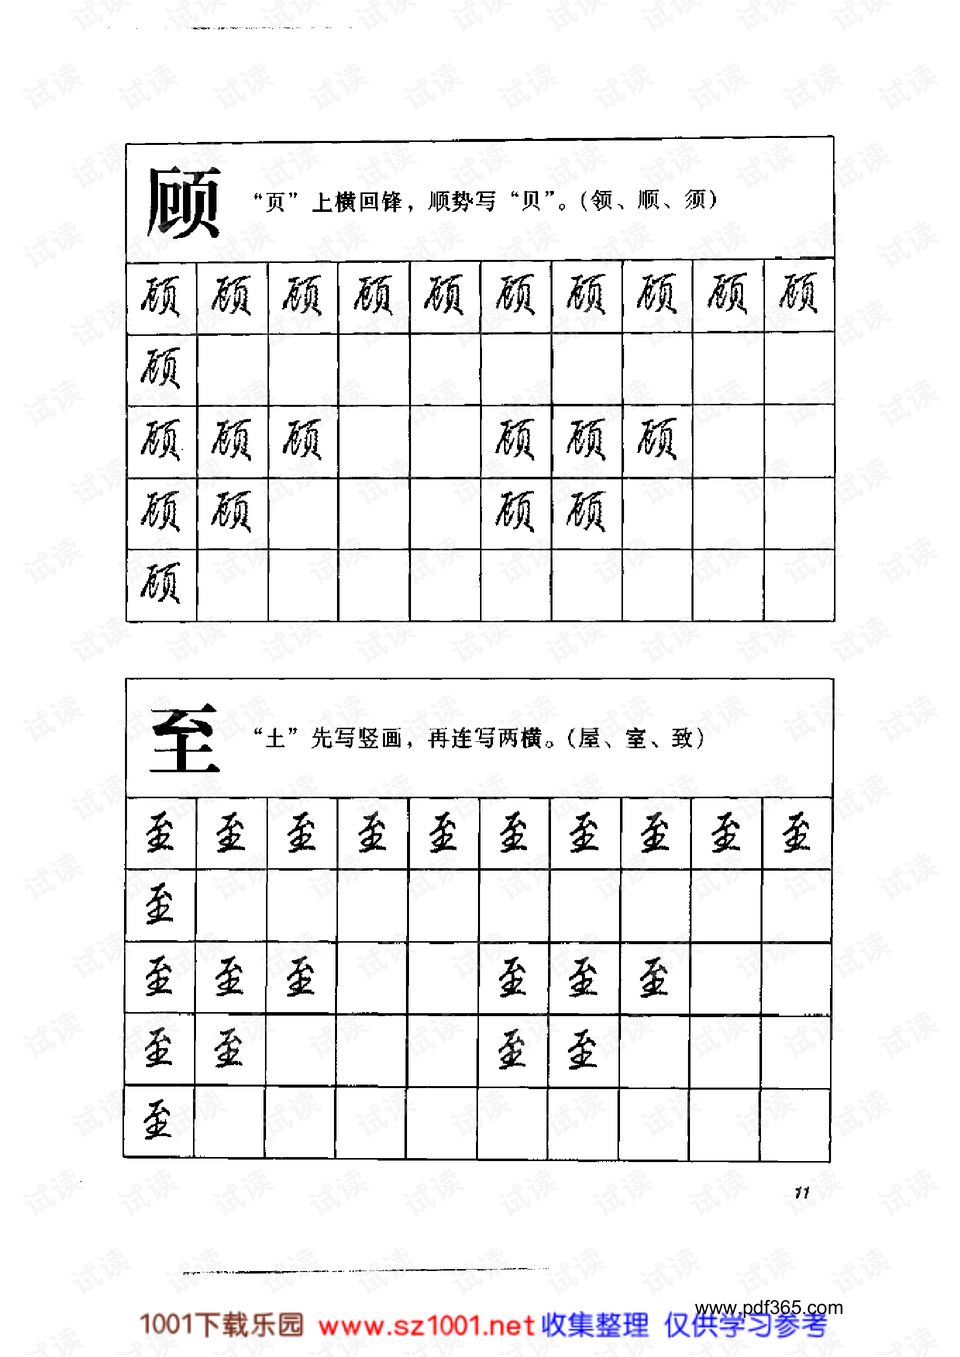 顾 “页”上横回锋，顺势写“贝”。（领、顺、须）
顾 顾 顾 顾 顾 顾 顾 顾 顾 顾
顾
顾 顾 顾 顾 顾 顾
顾 顾 顾 顾
顾
至 “土”先写竖画，再连写两横。（屋、室、致）
至 至 至 至 至 至 至 至 至 至
至
至 至 至 至 至 至
至 至 至 至
至
11
www.pdf365.com
1001下载乐园 www.sz1001.net 收集整理 仅供学习参考
试读